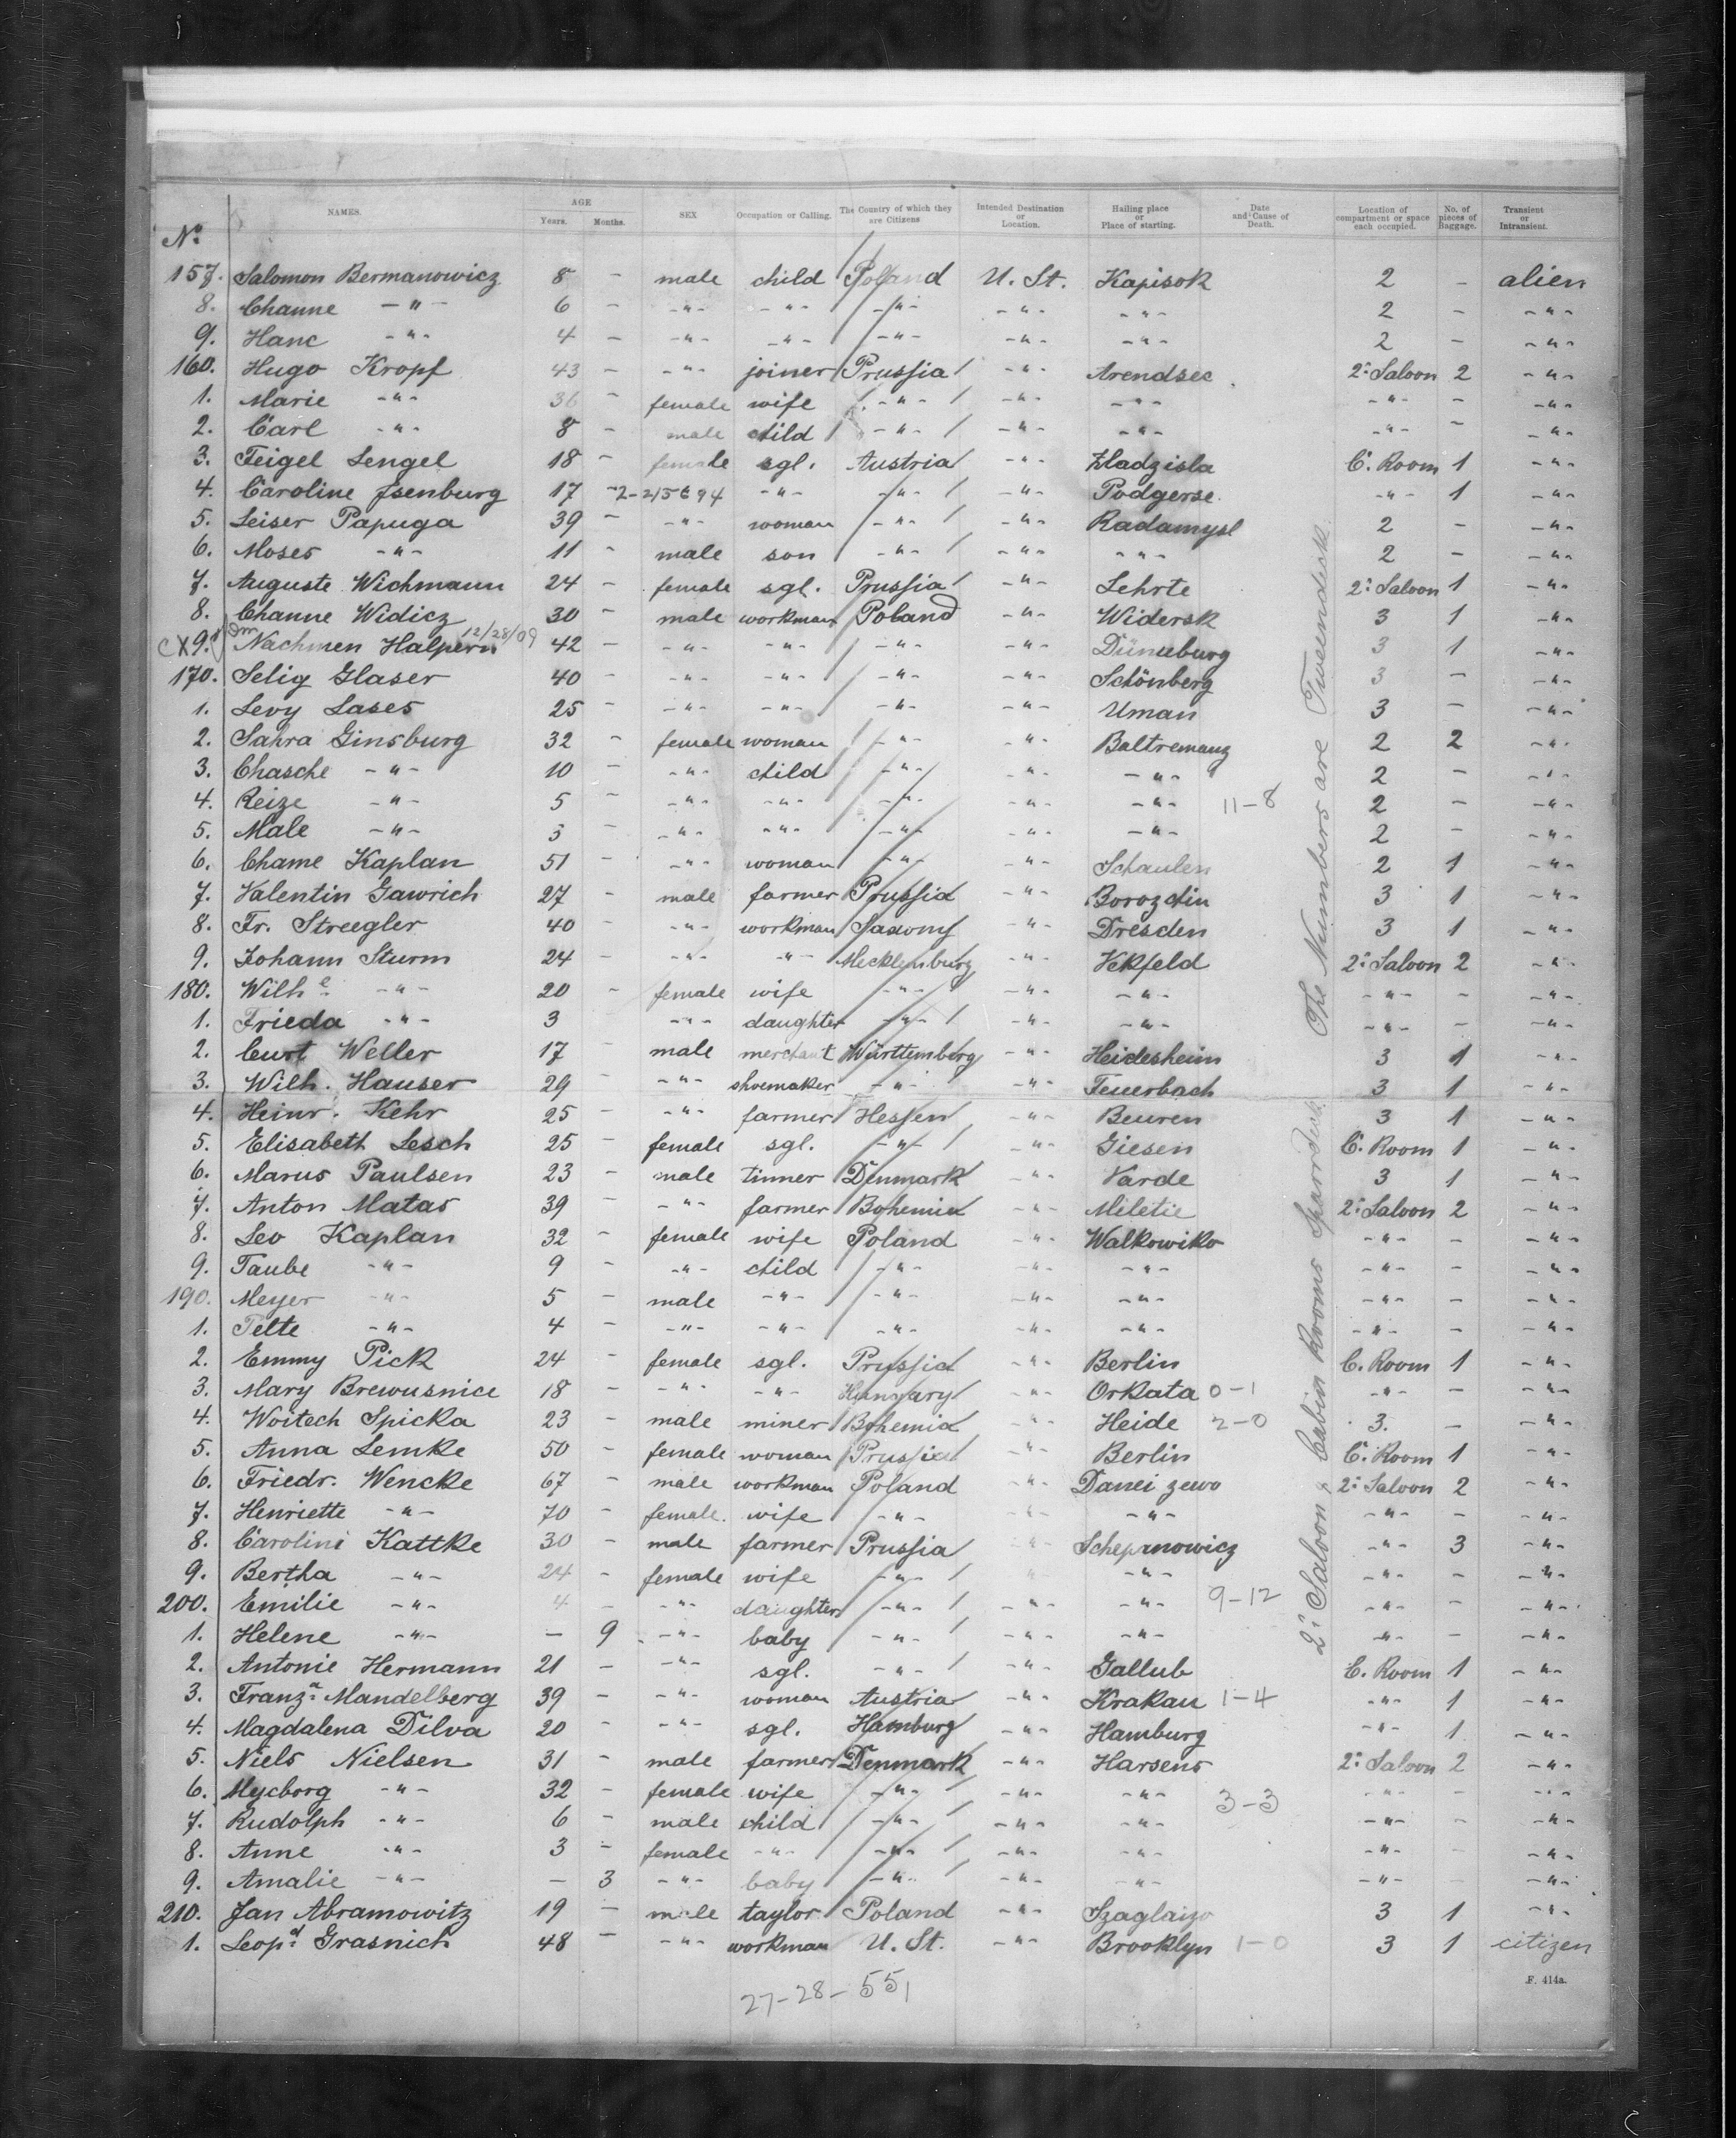 NAMES. AGE Years. Months. SEX Occupation or Calling. The Country of which they are Citizens Intended Destination or Location. Hailing place or Place of starting. Date and Cause of Death. Location of compartment or space each occupied. No. of pieces of Baggage. Transient or Intransient.
No.
157. Salomon Bermanowicz 8 - male child Poland U. St. Kapisok 2 - alien
8. Channe -"- 6 - -"- -"- -"- -"- -"- 2 - -"-
9. Hanc -"- 4 - -"- -"- -"- -"- -"- 2 - -"-
160. Hugo Kropf 43 - -"- joiner Prussia -"- Arendsee 2: Saloon 2 -"-
1. Marie -"- 36 - female wife -"- -"- -"- -"- - -"-
2. Carl -"- 8 - male child -"- -"- -"- -"- - -"-
3. Feigel Lengel 18 - female sgl. Austria -"- C. Room 1 -"-
4. Caroline Isenburg 17 -"- -"- -"- Podgerse -"- 1 -"-
5. Leiser Papuga 39 - -"- woman -"- -"- Radamysl 2 - -"-
6. Moses -"- 11 - male son -"- -"- -"- 2 - -"-
7. Auguste Wichmann 24 - female sgl. Prussia -"- Lehrte 2: Saloon 1 -"-
8. Channe Widicz 30 - male workman Poland -"- Widersk 3 1 -"-
CX 9. Nachmen Halpern 12/28/09 42 - -"- -"- -"- -"- Dünuburg 3 1 -"-
170. Selig Glaser 40 - -"- -"- -"- -"- Schönberg 3 - -"-
1. Levy Lases 25 - -"- -"- -"- -"- Uman 3 - -"-
2. Sahra Ginsburg 32 - female woman -"- -"- Baltremanz 2 2 -"-
3. Chasche -"- 10 - -"- child -"- -"- -"- 2 - -"-
4. Reize -"- 5 - -"- -"- -"- -"- -"- 11-8 2 - -"-
5. Male -"- 3 - -"- -"- -"- -"- -"- 2 - -"-
6. Chame Kaplan 51 - -"- woman -"- -"- Schaulen 2 1 -"-
7. Valentin Gawrich 27 - male farmer Prussia -"- Borozchin 3 1 -"-
8. Fr. Streegler 40 - -"- workman Saxony -"- Dresden 3 1 -"-
9. Johann Sturm 24 - -"- -"- Mecklemburg -"- Vekfeld 2: Saloon 2 -"-
180. Wilhe -"- 20 - female wife -"- -"- -"- -"- - -"-
1. Frieda -"- 3 -"- daughter -"- -"- -"- -"- - -"-
2. Curt Weller 17 - male merchant Württemberg -"- Heidesheim 3 1 -"-
3. Wilh. Hauser 29 - -"- shoemaker -"- -"- Feuerbach 3 1 -"-
4. Heinr. Kehr 25 - -"- farmer Hessen -"- Beuren 3 1 -"-
5. Elisabeth Lesch 25 - female sgl. -"- -"- Giesen C. Room 1 -"-
6. Marus Paulsen 23 - male tinner Denmark -"- Varde 3 1 -"-
7. Anton Matas 39 -"- farmer Bohemia -"- Miletie 2: Saloon 2 -"-
8. Leo Kaplan 32 - female wife Poland -"- Walkowiko -"- - -"-
9. Taube -"- 9 - -"- child -"- -"- -"- -"- - -"-
190. Meyer -"- 5 - male -"- -"- -"- -"- -"- - -"-
1. Telte -"- 4 - -"- -"- -"- -"- -"- -"- - -"-
2. Emmy Pick 24 - female sgl. Prussia -"- Berlin C. Room 1 -"-
3. Mary Brewusnice 18 - -"- -"- Hungary -"- Orkata 0-1 -"- - -"-
4. Woitech Spicka 23 - male miner Bohemia -"- Heide 2-0 3. - -"-
5. Anna Lemke 50 - female woman Prussia -"- Berlin C. Room 1 -"-
6. Friedr. Wencke 67 - male workman Poland -"- Daneizewo 2: Saloon 2 -"-
7. Henriette -"- 70 - female. wife -"- -"- -"- -"- - -"-
8. Carolini Kattke 30 - male farmer Prussia -"- Schepmowicz -"- 3 -"-
9. Bertha -"- 24 - female wife -"- -"- -"- -"- - -"-
200. Emilie -"- 4 - -"- daughter -"- -"- -"- 9-12 -"- - -"-
1. Helene -"- - 9 -"- baby -"- -"- -"- -"- - -"-
2. Antonie Hermann 21 - -"- sgl. -"- -"- Gallub C. Room 1 -"-
3. Franza. Mandelberg 39 - -"- woman Austria -"- Krakau 1-4 -"- 1 -"-
4. Magdalena Dilva 20 - -"- sgl. Hamburg -"- Hamburg -"- 1 -"-
5. Niels Nielsen 31 - male farmer Denmark -"- Harsens 2: Saloon 2 -"-
6. Mycborg -"- 32 - female wife -"- -"- -"- 3-3 -"- - -"-
7. Rudolph -"- 6 - male child -"- -"- -"- -"- - -"-
8. Anne -"- 3 - female -"- -"- -"- -"- -"- - -"-
9. Amalie -"- - 3 -"- baby -"- -"- -"- -"- - -"-
210. Jan Abramowitz 19 - male taylor Poland -"- Szaglaizo 3 1 -"-
1. Leopd. Grasnich 48 - -"- workman U. St. -"- Brooklyn 1-0 3 1 citizen
2: Saloon & Cabin Rooms Spardeck. The Numbers are Tweendeck
27-28-55
F. 414a.